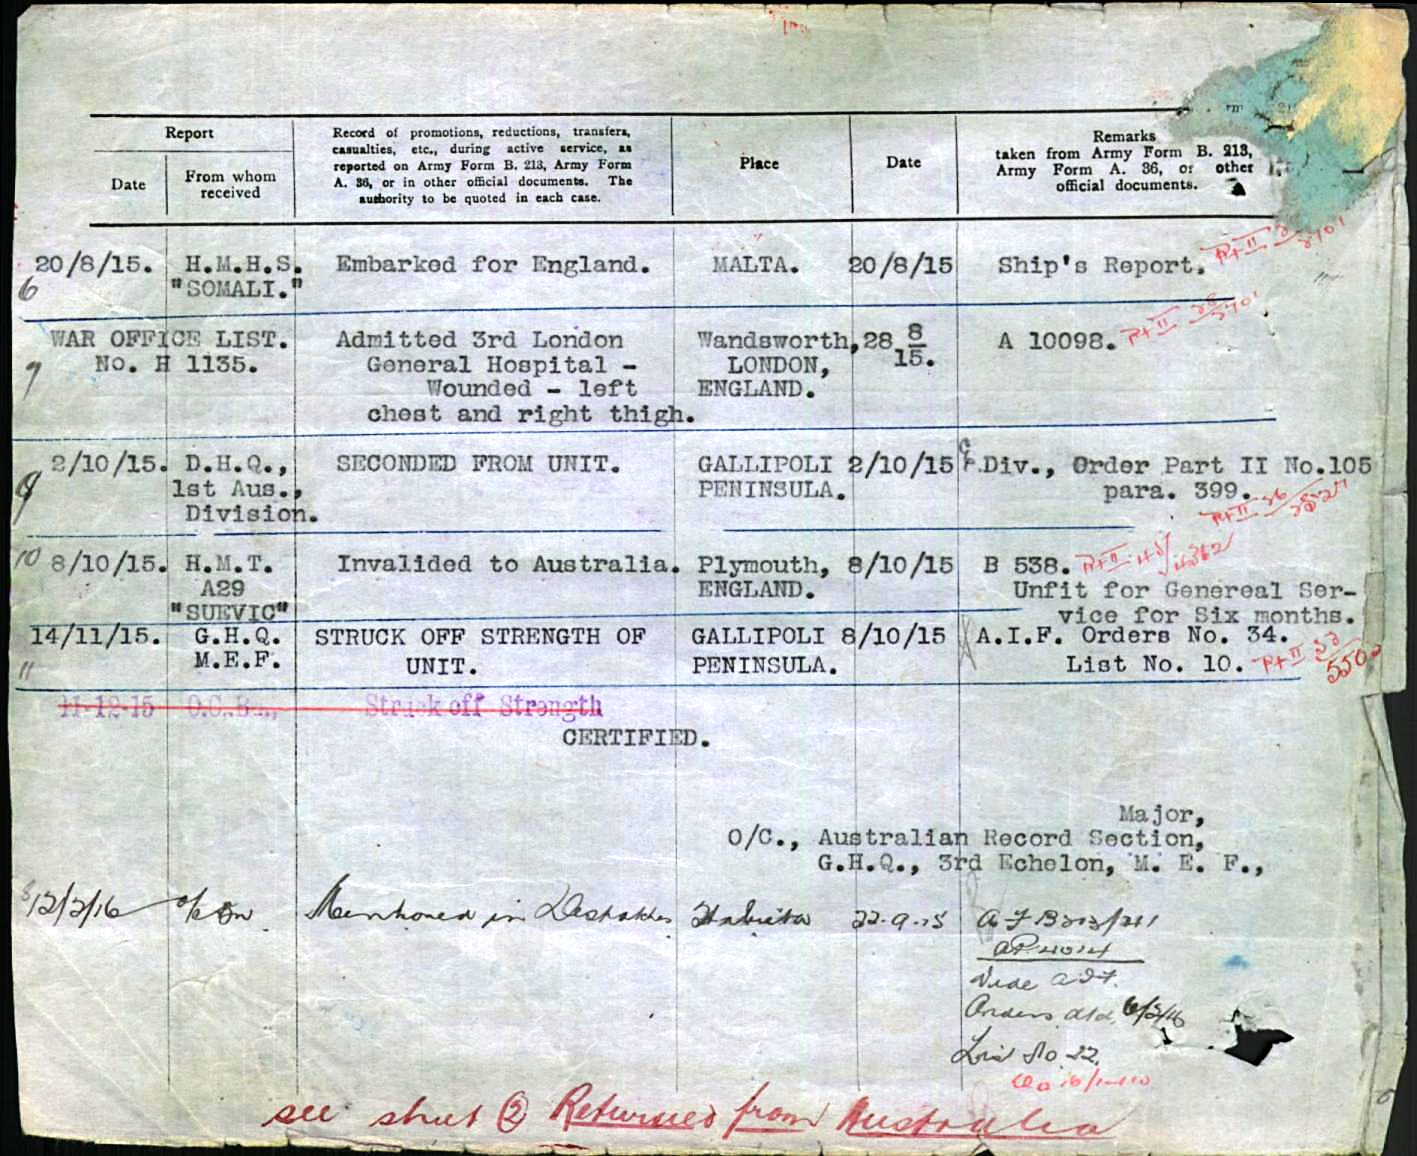 Report
Date
From whom
received
Record of promotions, reductions, transfers,
casualties, etc., during active service, as
reported on Army Form B. 213, Army Form
A. 36, or in other official documents. The
authority to be quoted in each case.
Place
Date
Remarks
taken from Army Form B. 213,
Army Form A. 36, or other
official documents.
20/8/15. H.M.H.S. Embarked for England. MALTA. 20/8/15 Ship's Report. Pt II
6 "SOMALI."
WAR OFFICE LIST. Admitted 3rd London Wandsworth, 28 8 A 10098. Pt II
No. H 1135. General Hospital - LONDON, 15.
7 Wounded - left ENGLAND.
chest and right thigh.
2/10/15. D.H.Q., SECONDED FROM UNIT. GALLIPOLI 2/10/15 Div., Order Part II No.105
9 1st Aus., PENINSULA. para. 399. Pt II
Division.
10 8/10/15. H.M.T. Invalided to Australia. Plymouth, 8/10/15 B 538. Pt II
A29 ENGLAND. Unfit for Genereal Ser-
"SUEVIC" vice for Six months.
14/11/15. G.H.Q. STRUCK OFF STRENGTH OF GALLIPOLI 8/10/15 A.I.F. Orders No. 34.
11 M.E.F. UNIT. PENINSULA. List No. 10. Pt II
11-12-15 O.C.Bn., Struck off Strength
CERTIFIED.
Major,
O/C., Australian Record Section,
G.H.Q., 3rd Echelon, M. E. F.,
12/2/16 Mentioned in Despatches 22.9.15 A F B213/
Vide
Orders dtd
List No 22.
see sheet 2 Returned from Australia